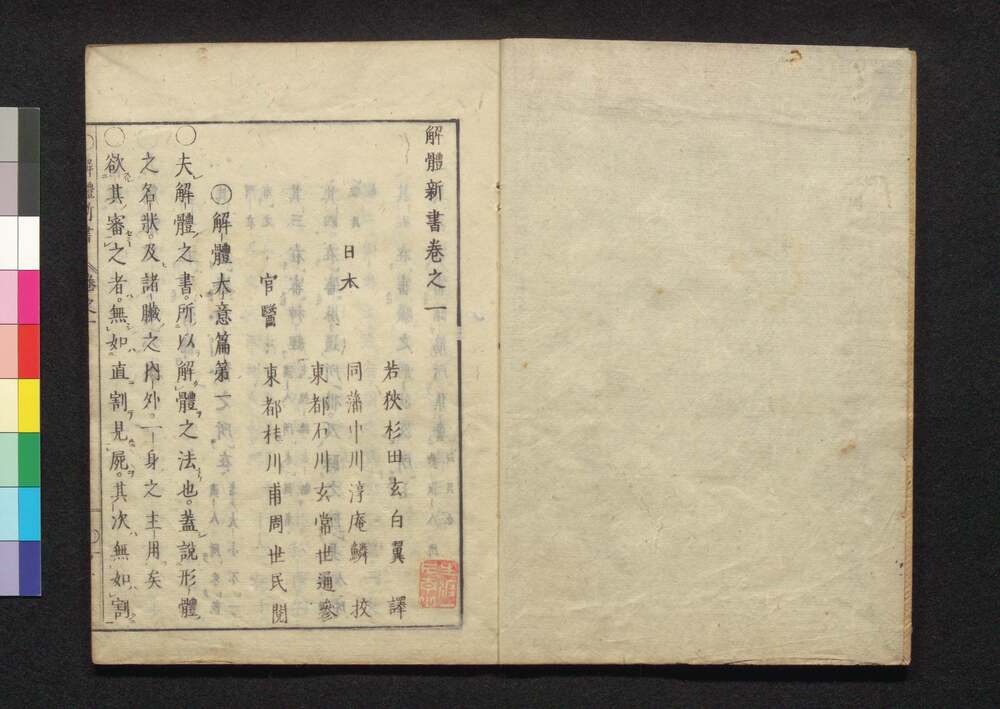 解體新書卷之一
若狹杉田玄白翼 譯
日本 同藩中川淳庵鱗 挍
東都石川玄常世通參
官醫 東都桂川甫周世民閱
〇解體大意篇第一
〇夫解體之書。所以解體之法也。蓋說形體
之名狀。及諸臟之內外。一身之主用矣
〇欲其審之者。無如直割見屍。其次無如割
解體新書 卷之一